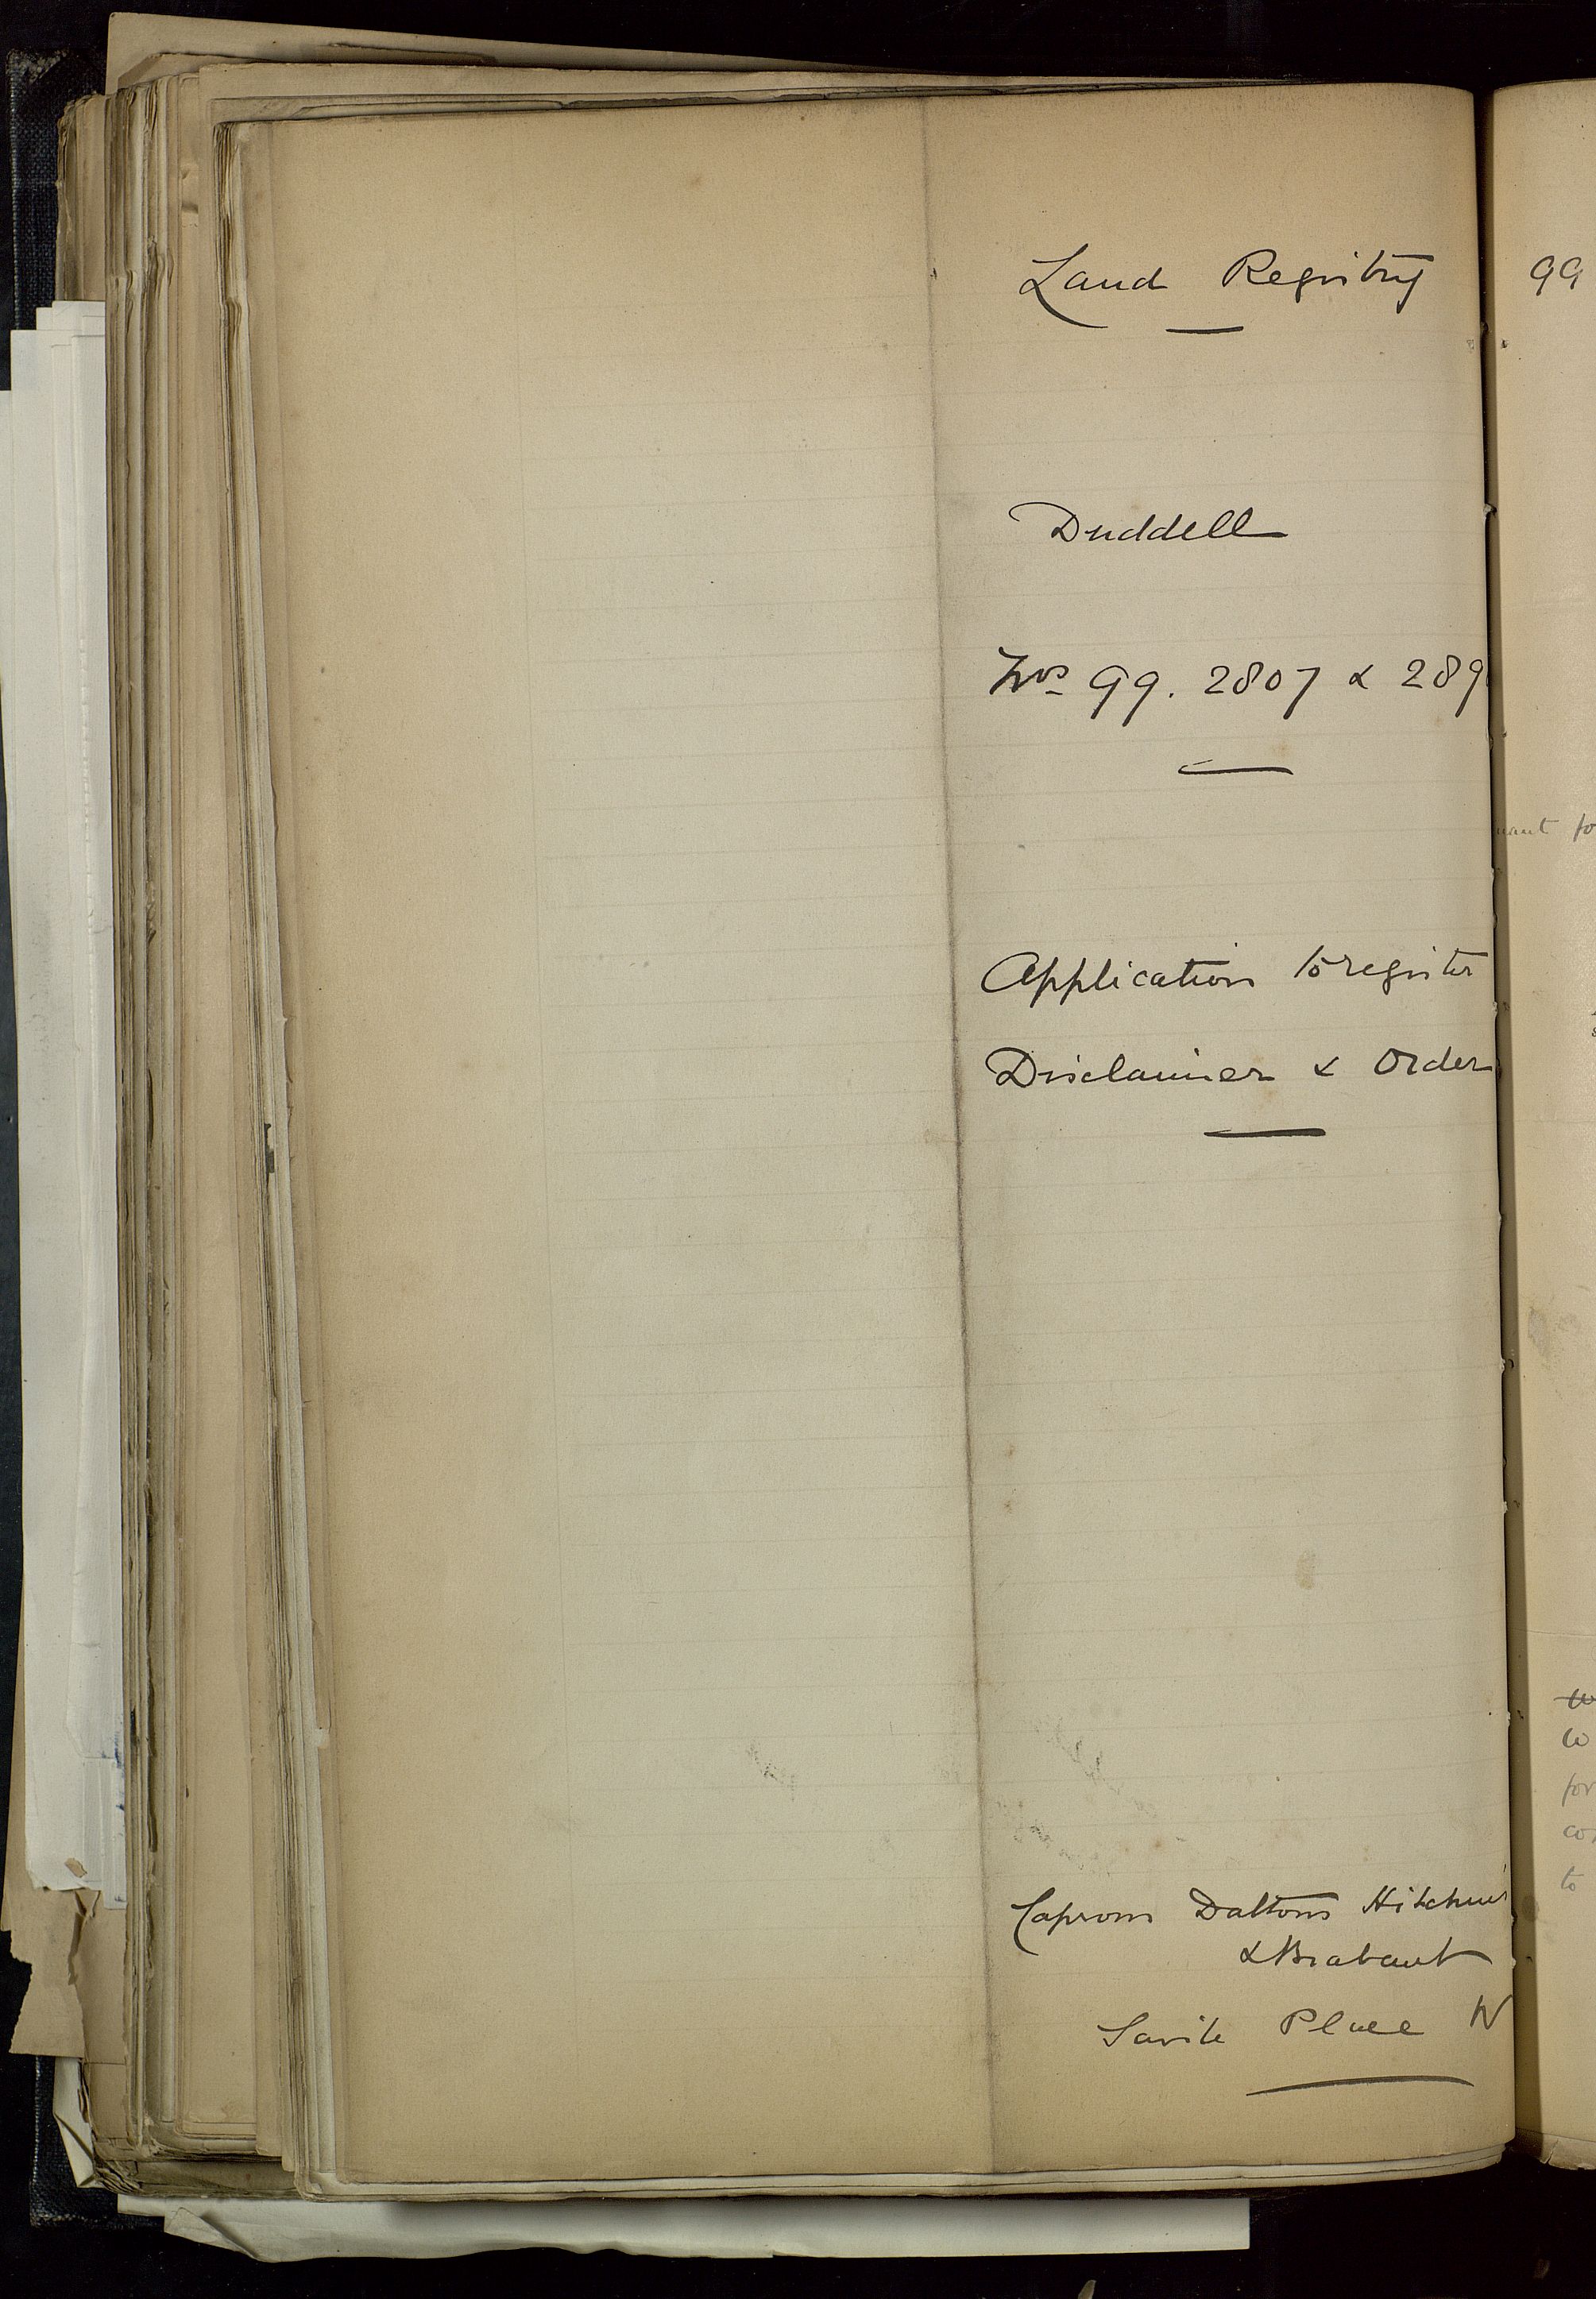 Land Registry
Duddell
Nos 99. 2807 & 289
Application to register
Disclaimer & Order
Caprons Daltons Hitchins
& Brabant
Savile Place W
99
for
to